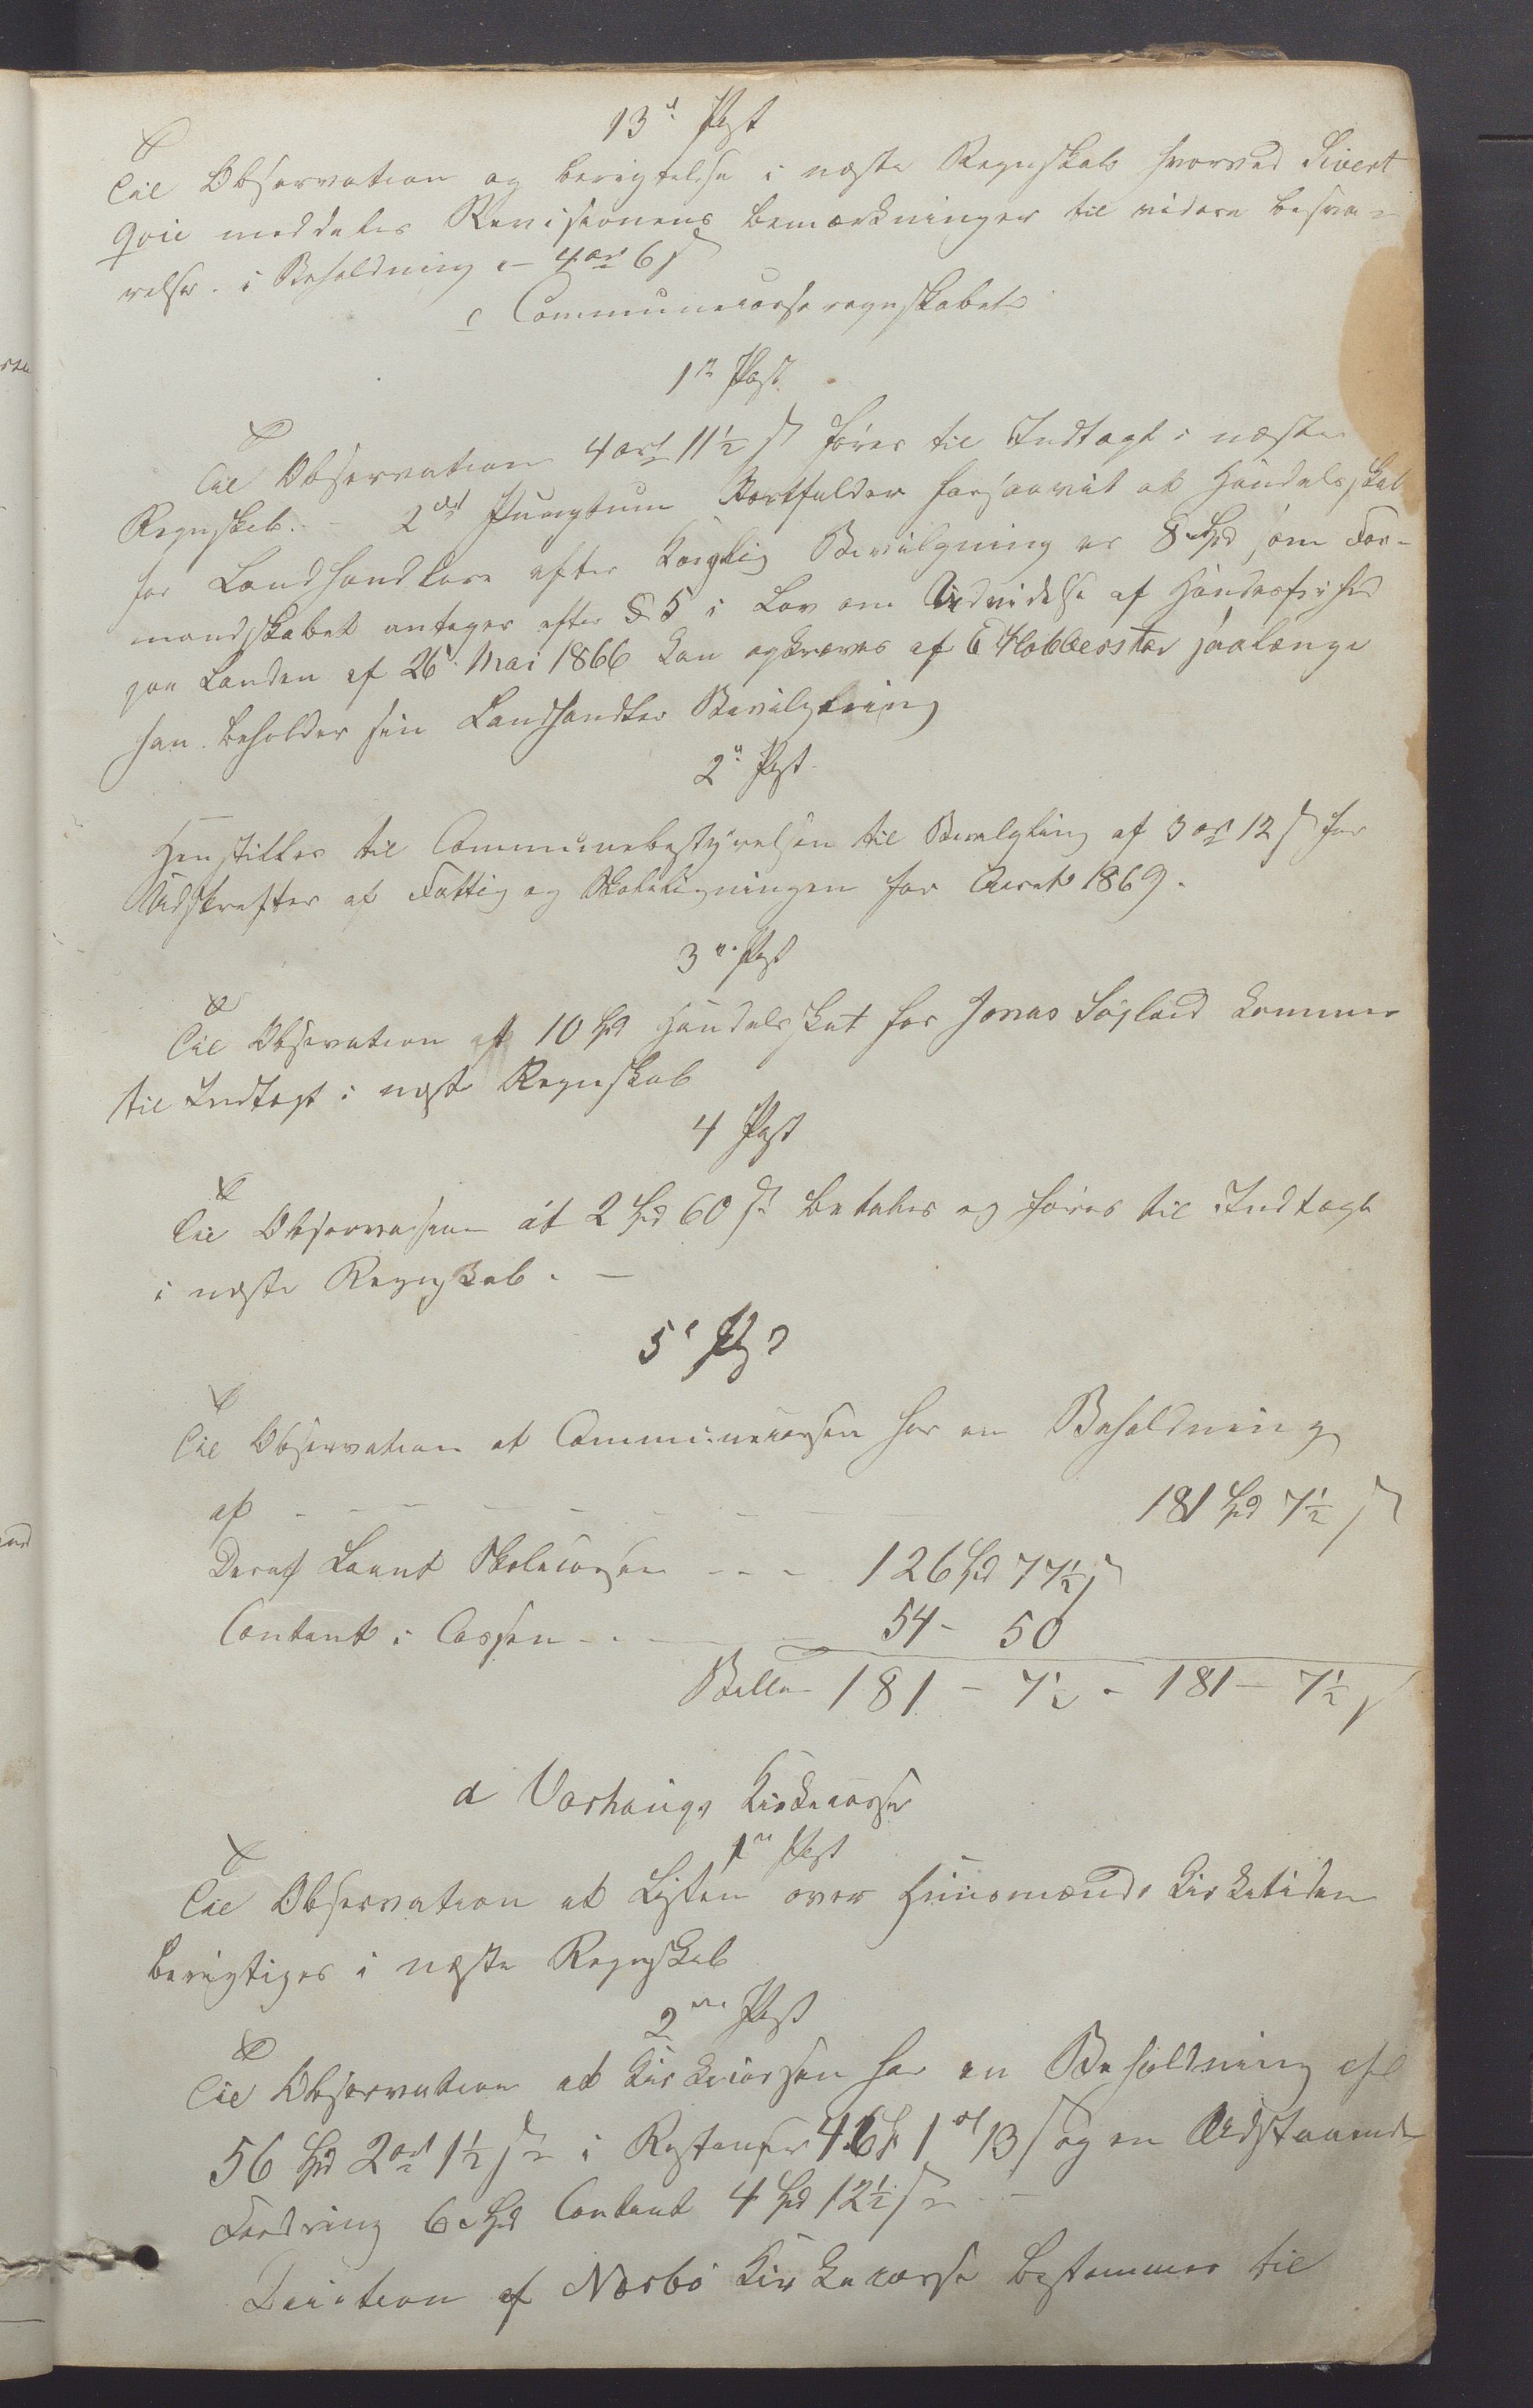 13de Post
Til Observation og berigtelse i næste Regnskab hvorved Sivert
Goie meddeles Revisionens bemærkninger til videre besva-
relse. i Beholdning 4 ort 6 s
c Communecasseregnskabet
1ste Post.
Til Observation 4 ort 11½ s føres til Indtægt i næste
Regnskab. - 2det Punctum Bortfalder forsaavit at Handelsskat
for Landhandlere efter Konglig Bevilgning er 8 Spd som For-
mandskabet antager efter § 5 i Lov om Udvidelse af Handesfrihed
paa Landen af 26de Mai 1866 kan opkræves af E Hobberstad saalænge
han beholder sin Landhandler Bevilgning
2de Post
Henstilles til Communebestyrelsen til Bevilgling af 3 ort 12 s for
Udskrifter af Fattig og Skoleligningen for Aaret 1869.
3die Post
Til Observation at 10 Spd Handelsskat for Jonas Søiland kommer
til Indtægt i næste Regnskab
4 Post
Til Observasion at 2 Spd 60 s betales og føres til Indtægt
i næste Regnskab. -
5te Post
Til Observation at Communecassen har en Beholdning
af - - - - - - - - 181 Spd 7½ s
Deraf Laant Skolecassen - - - 126 Spd 77½ s
Contant i Cassen - - - 54 - 50
Ballan 181 - 7½ - 181 - 7½ s
d Varhougs Kirkecasse
1ste Post
Til Observation at Listen over Huusmænds Kirketiden
berigtiges i næste Regnskab
2den Post
Til Observation at Kirkecassen har en Beholdning af
56 Spd 2 ort 1½ s i Restanser 46 Sp 1 ort 13 s og en Udstaaende
Fordring 6 Spd Contant 4 Spd 12½ s -
af Nærbø Kirkecasse bestemmes til